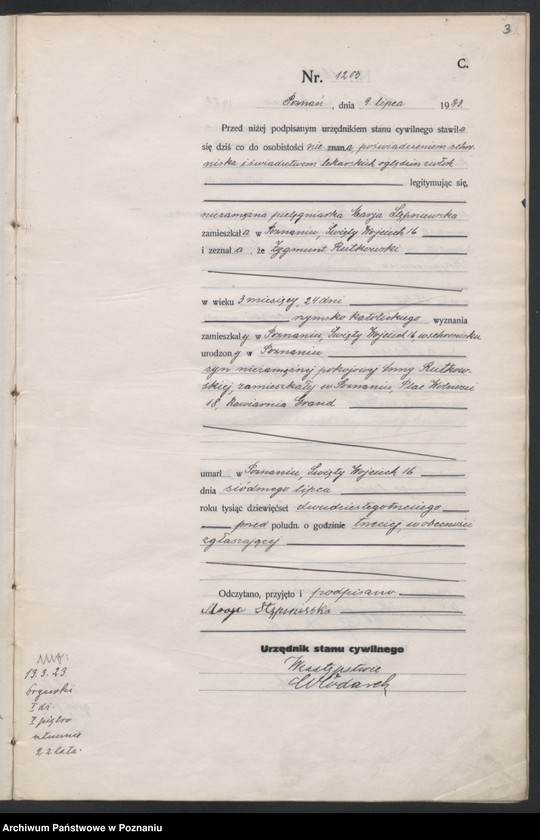 3
C.
Nr. 1203
Poznań, dnia 9 lipca 1923.
Przed niżej podpisanym urzędnikiem stanu cywilnego stawiła
się dziś co do osobistości nie znana, poświadczeniem schro-
niska i świadectwem lekarskich oględzin zwłok
legitymując się,
niezamężna pielęgniarka Marja Stępniewska
zamieszkała w Poznaniu, Święty Wojciech 16
i zeznała, że Zygmunt Rutkowski
w wieku 3 miesięcy, 24 dni
rzymsko katolickiego wyznania
zamieszkały w Poznaniu, Święty Wojciech 16 w schronisku
urodzony w Poznaniu
syn niezamężnej pokojowej Anny Rutkow-
skiej, zamieszkałej w Poznaniu, Plac Wolności
18, Kawiarnia Grand
umarł w Poznaniu, Święty Wojciech 16
dnia siódmego lipca
roku tysiąc dziewięćset dwudziestegotrzeciego
przed połudn. o godzinie trzeciej, w obecności
zgłaszającej
Odczytano, przyjęto i podpisano
Marja Stępniewska
Urzędnik stanu cywilnego
W zastępstwie
Włodarek
13.3.23.
I piętro
22 lata.
Archiwum Państwowe w Poznaniu